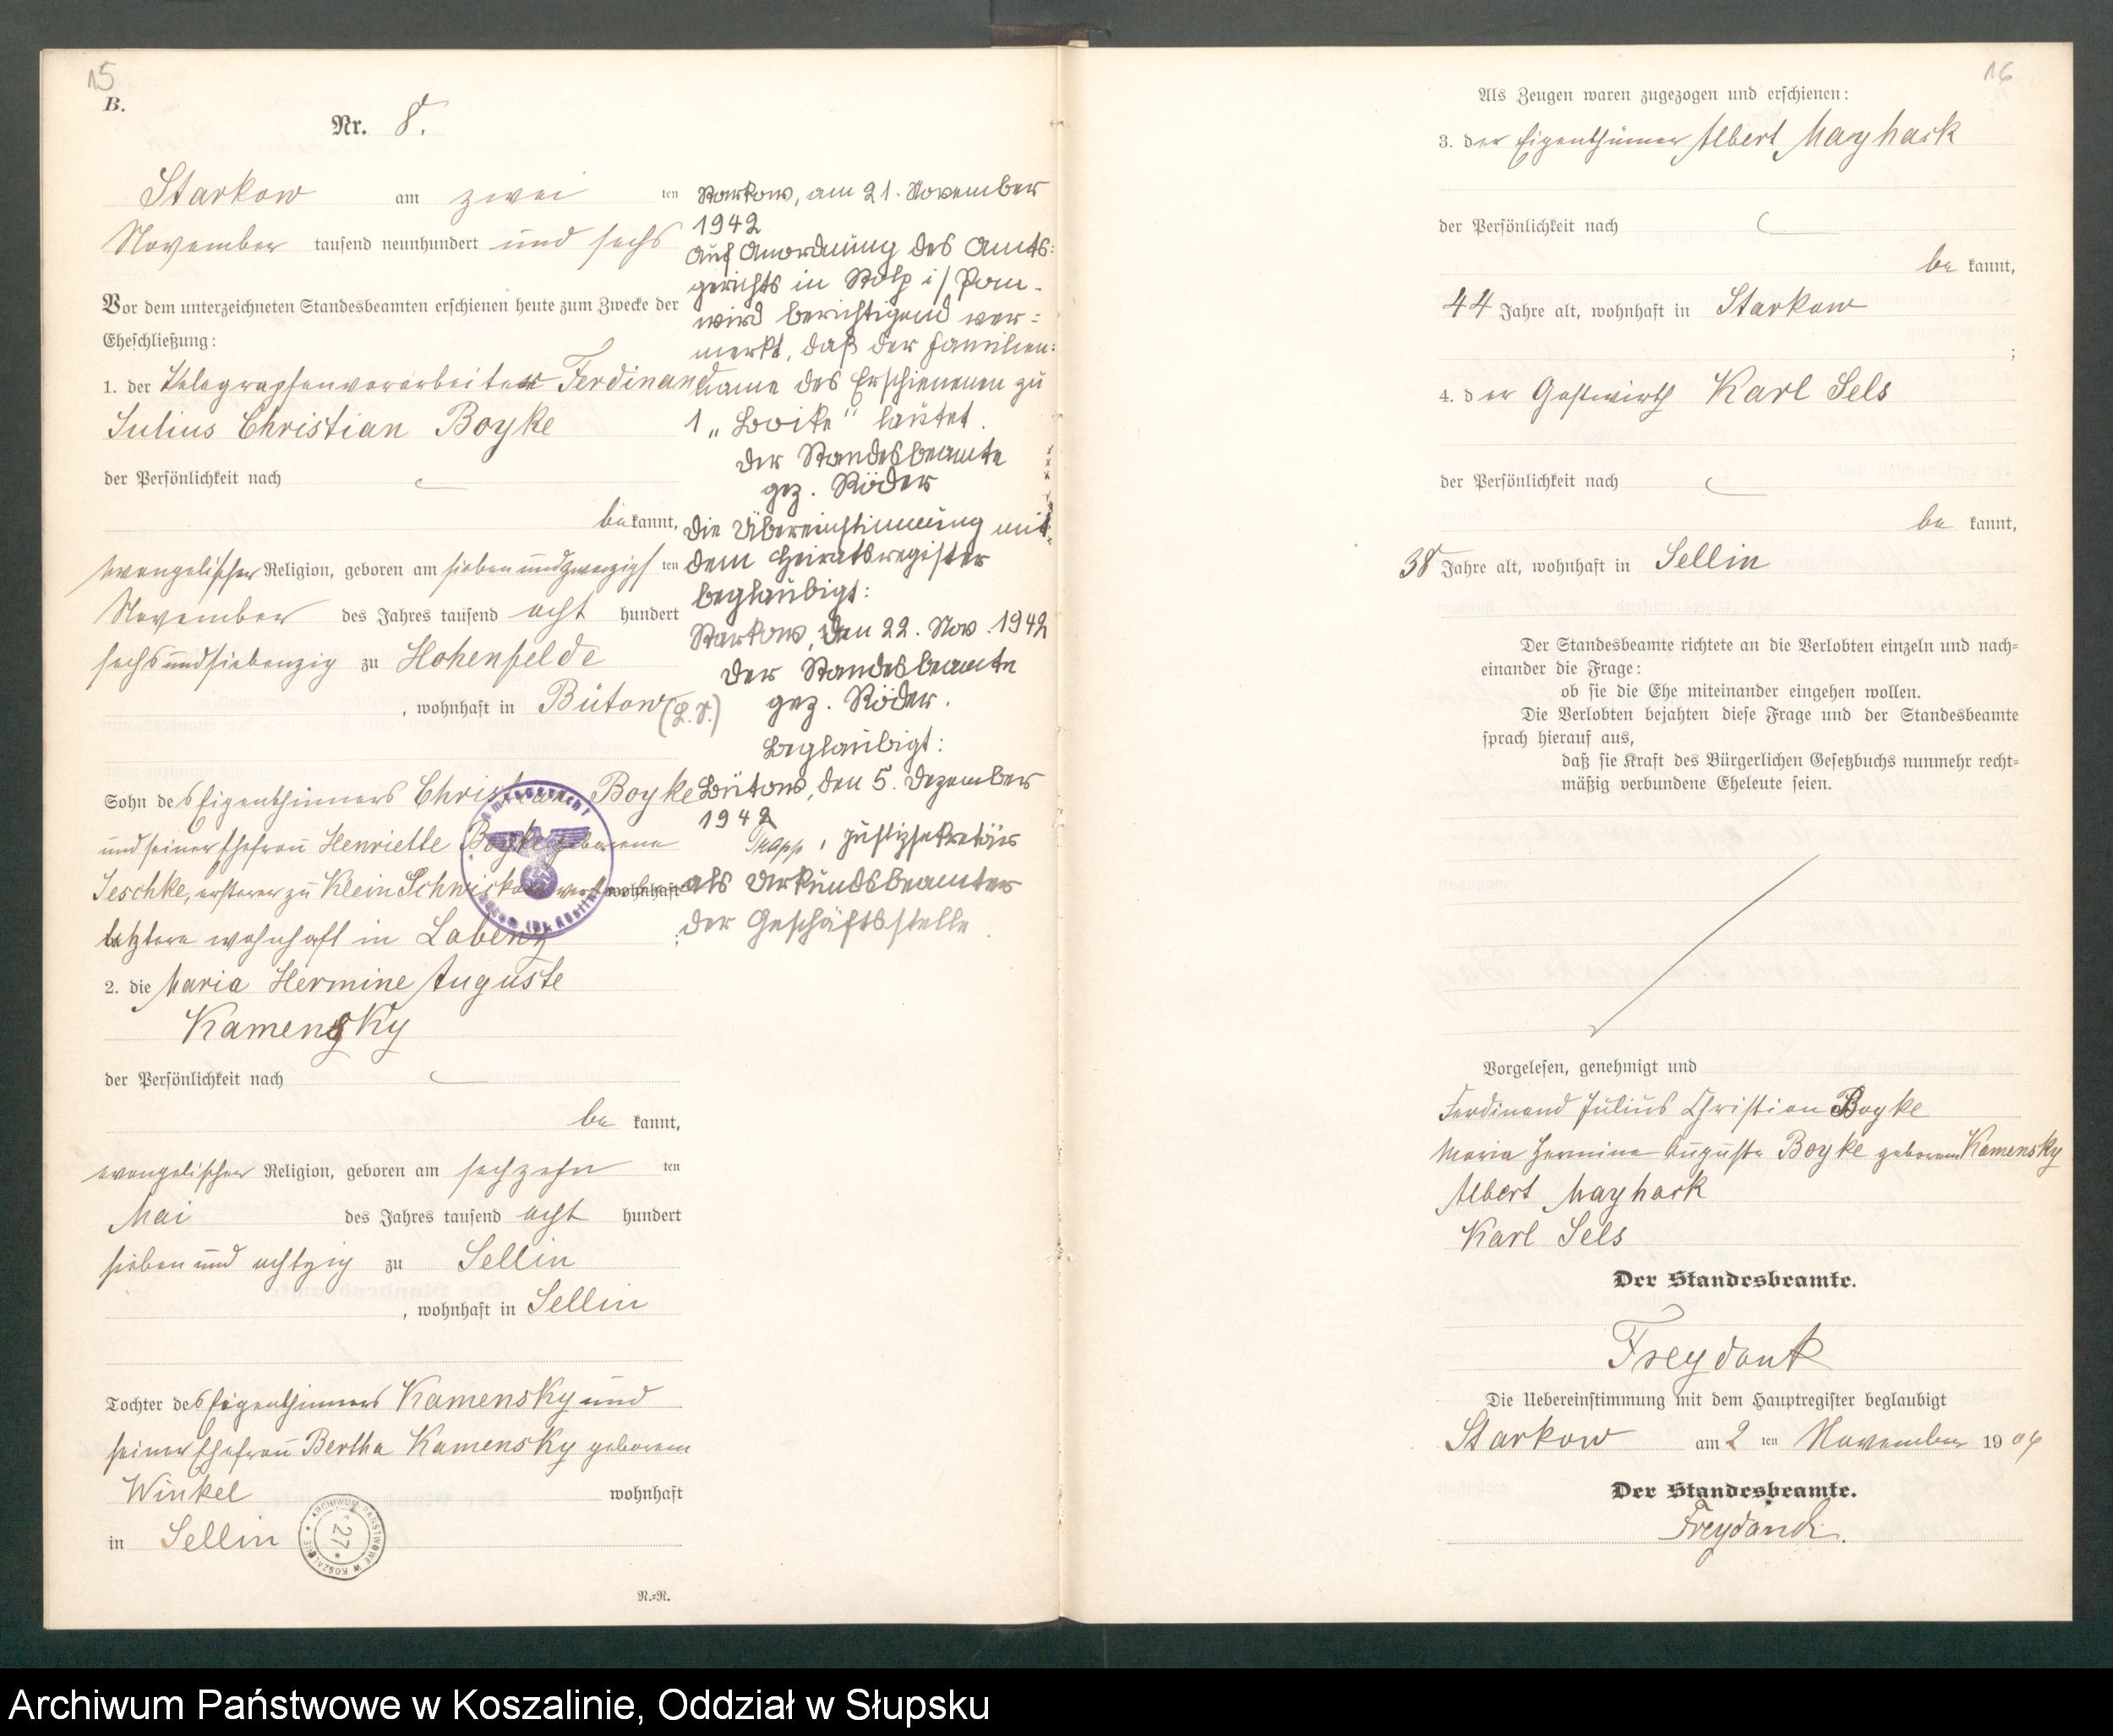 15
B.
Nr. 8.
Starkow am zwei ten
November tausend neunhundert und sechs
Vor dem unterzeichneten Standesbeamten erschienen heute zum Zwecke der
Eheschließung:
1. der Telegraphenvorarbeiter Ferdinand
Julius Christian Boyke
der Persönlichkeit nach
be kannt,
evangelischer Religion, geboren am sieben und zwanzigs ten
November des Jahres tausend acht hundert
sechs und siebenzig zu Hohenfelde
, wohnhaft in Bütow
Sohn des Eigenthümers Christian Boyke
und seiner Ehefrau Henriette Boyke geborene
Jeschke, ersterer zu Klein Schwichow verstorben wohnhaft
letztere wohnhaft in Labenz ;
2. die Maria Hermine Auguste
Kamensky
der Persönlichkeit nach
be kannt,
evangelischer Religion, geboren am sechzehn ten
Mai des Jahres tausend acht hundert
sieben und achtzig zu Sellin
, wohnhaft in Sellin
Tochter des Eigenthümers Kamensky und
seiner Ehefrau Bertha Kamensky geborene
Winkel wohnhaft
in Sellin
ARCHIWUM PAŃSTWOWE W KOSZALINIE
27
N.=N.
Starkow, am 21. November
1942
Auf Anordnung des Amts:
gerichts in Stolp i/Pom.
wird berichtigend ver:
merkt, daß der Familien:
name des Erschienenen zu
1 „Boike" lautet.
Der Standesbeamte
gez. Röder
Die Übereinstimmung mit
dem Heiratsregister
beglaubigt:
Starkow, den 22. Nov. 1942
Der Standesbeamte
(L.S.) gez. Röder.
Beglaubigt:
Bütow, den 5. Dezember
1942
, Justizsekretär
als Urkundsbeamter
der Geschäftsstelle
Amtsgericht
16
Als Zeugen waren zugezogen und erschienen:
3. der Eigenthümer Albert Mayhack
der Persönlichkeit nach
be kannt,
44 Jahre alt, wohnhaft in Starkow
;
4. der Gastwirth Karl Sels
der Persönlichkeit nach
be kannt,
38 Jahre alt, wohnhaft in Sellin
Der Standesbeamte richtete an die Verlobten einzeln und nach=
einander die Frage:
ob sie die Ehe miteinander eingehen wollen.
Die Verlobten bejahten diese Frage und der Standesbeamte
sprach hierauf aus,
daß sie Kraft des Bürgerlichen Gesetzbuchs nunmehr recht=
mäßig verbundene Eheleute seien.
Vorgelesen, genehmigt und
Ferdinand Julius Christian Boyke
Maria Hermine Auguste Boyke geborene Kamensky
Albert Mayhack
Karl Sels
Der Standesbeamte.
Freydank
Die Uebereinstimmung mit dem Hauptregister beglaubigt
Starkow am 2 ten November 19 06
Der Standesbeamte.
Freydank.
Archiwum Państwowe w Koszalinie, Oddział w Słupsku